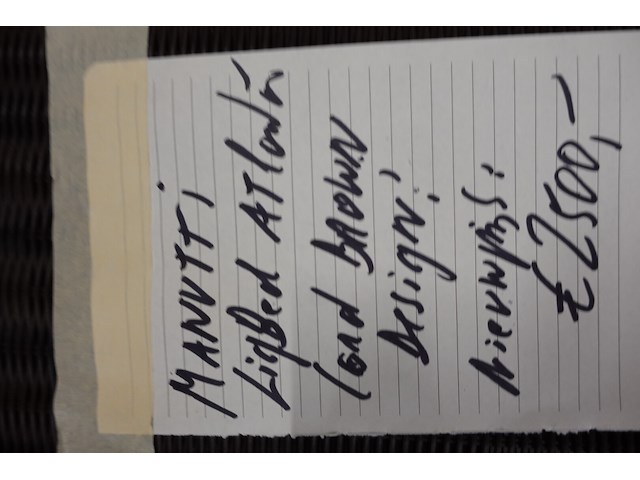 MANUTTI
Ligbed ATlantis
Gerd BROWN
Design!
Nieuwprijs:
€ 2500,-